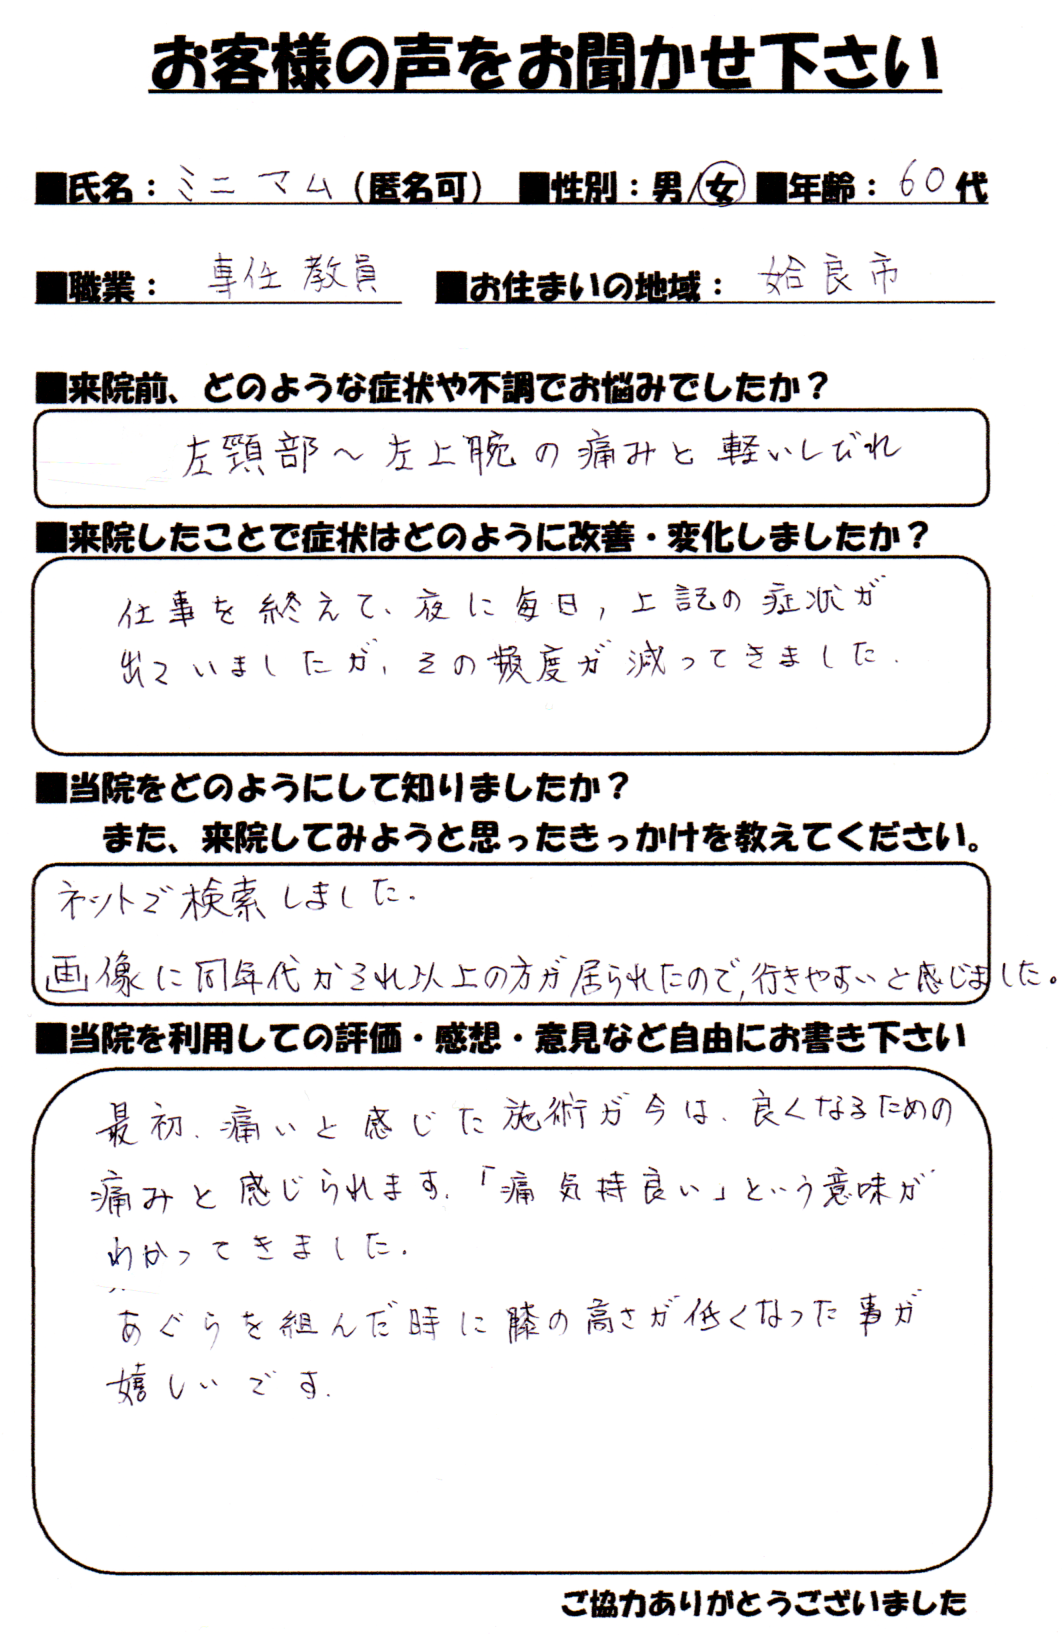 お客様の声をお聞かせ下さい
■氏名：ミニマム（匿名可） ■性別：男/女 ■年齢：60代
■職業：専任教員 ■お住まいの地域：姶良市
■来院前、どのような症状や不調でお悩みでしたか？
左頸部～左上腕の痛みと軽いしびれ
■来院したことで症状はどのように改善・変化しましたか？
仕事を終えて、夜に毎日，上記の症状が
出ていましたが，その頻度が減ってきました．
■当院をどのようにして知りましたか？
また、来院してみようと思ったきっかけを教えてください。
ネットで検索しました．
画像に同年代かそれ以上の方が居られたので，行きやすいと感じました。
■当院を利用しての評価・感想・意見など自由にお書き下さい
最初、痛いと感じた施術が今は、良くなるための
痛みと感じられます．「痛気持良い」という意味が
わかってきました．
あぐらを組んだ時に膝の高さが低くなった事が
嬉しいです．
ご協力ありがとうございました